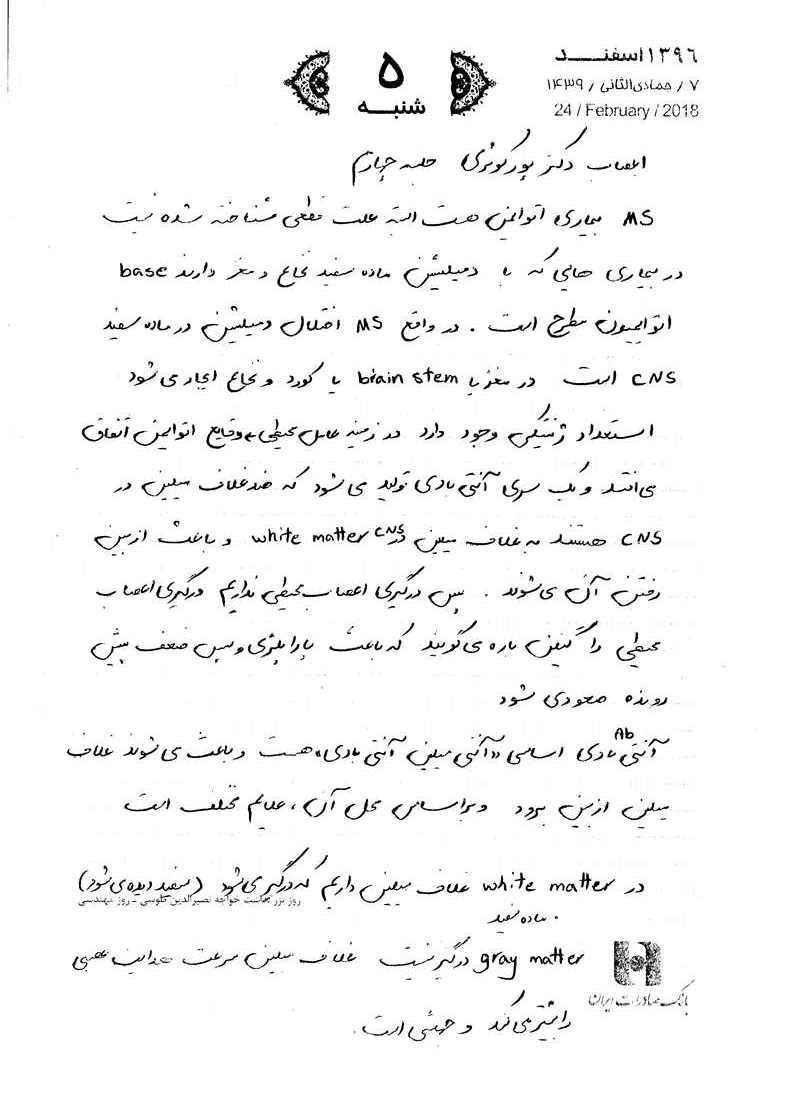 ۱۳۹۶ اسفنـــد
۷ / جمادی‌الثانی / ۱۴۳۹
24 / February / 2018
۵
شنبـــه
اعصاب دکتر پورکوثری جلسه چهارم
MS بیماری اتوایمن هست البته علت قطعی شناخته شده نیست
در بیماری هایی که با دمیلیشن ماده سفید نخاع و مغز دارند base
اتوایمیون مطرح است . در واقع MS اختلال دمیلیشن در ماده سفید
CNS است در مغز یا brain stem یا کورد و نخاع ایجاد می شود
استعداد ژنتیکی وجود دارد در زمینه عامل محیطی ← وقایع اتوایمن اتفاق
می افتند و یک سری آنتی بادی تولید می شود که ضد غلاف میلین در
CNS هستند به غلاف میلین در CNS white matter و باعث از بین
رفتن آن می شوند . پس درگیری اعصاب محیطی نداریم درگیری اعصاب
محیطی را گیلن باره می گویند که باعث پاراپلژی و سپس ضعف پیش
رونده صعودی شود
Ab
آنتی بادی اساسی «آنتی میلین آنتی بادی» هست و باعث می شوند غلاف
میلین از بین برود و براساس محل آن ، علایم مختلف است
در white matter غلاف میلین داریم که درگیر می شود (سفید دیده می شود)
روز بزرگداشت خواجه نصیرالدین طوسی - روز مهندسی
ماده سفید .
gray matter درگیر نیست غلاف میلین سرعت هدایت عصبی
بانک صادرات ایران
را بیشتر می کند و جهشی است .